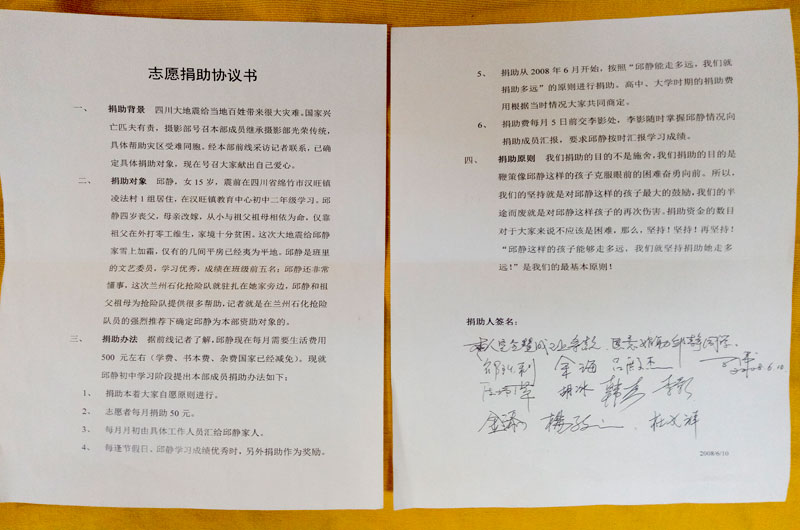 志愿捐助协议书
一、 捐助背景 四川大地震给当地百姓带来很大灾难。国家兴
亡匹夫有责，摄影部号召本部成员继承摄影部光荣传统，
具体帮助灾区受难同胞。经本部前线采访记者联系，已确
定具体捐助对象，现在号召大家献出自己爱心。
二、 捐助对象 邱静，女 15 岁，震前在四川省绵竹市汉旺镇
凌法村 1 组居住，在汉旺镇教育中心初中二年级学习。邱
静四岁丧父，母亲改嫁，从小与祖父祖母相依为命，仅靠
祖父在外打零工维生，家境十分贫困。这次大地震给邱静
家雪上加霜，仅有的几间平房已经夷为平地。邱静是班里
的文艺委员，学习优秀，成绩在班级前五名；邱静还非常
懂事，这次兰州石化抢险队就驻扎在她家旁边，邱静和祖
父祖母为抢险队提供很多帮助，记者就是在兰州石化抢险
队员的强烈推荐下确定邱静为本部资助对象的。
三、 捐助办法 据前线记者了解，邱静现在每月需要生活费用
500 元左右（学费、书本费、杂费国家已经减免）。现就
邱静初中学习阶段提出本部成员捐助办法如下：
1、 捐助本着大家自愿原则进行。
2、 志愿者每月捐助 50 元。
3、 每月月初由具体工作人员汇给邱静家人。
4、 每逢节假日、邱静学习成绩优秀时，另外捐助作为奖励。
5、 捐助从 2008 年 6 月开始，按照“邱静能走多远，我们就
捐助多远”的原则进行捐助。高中、大学时期的捐助费
用根据当时情况大家共同商定。
6、 捐助费每月 5 日前交李影处，李影随时掌握邱静情况向
捐助成员汇报，要求邱静按时汇报学习成绩。
四、 捐助原则 我们捐助的目的不是施舍，我们捐助的目的是
鞭策像邱静这样的孩子克服眼前的困难奋勇向前。所以，
我们的坚持就是对邱静这样的孩子最大的鼓励，我们的半
途而废就是对邱静这样孩子的再次伤害。捐助资金的数目
对于大家来说不应该是困难，那么，坚持！坚持！再坚持！
“邱静这样的孩子能够走多远，我们就坚持捐助她走多
远！”是我们的最基本原则！
捐助人签名：
本人完全赞成以上条款，愿意捐助邱静同学。
金海
2008.6.10
胡冰 韩 李影
杨
2008/6/10